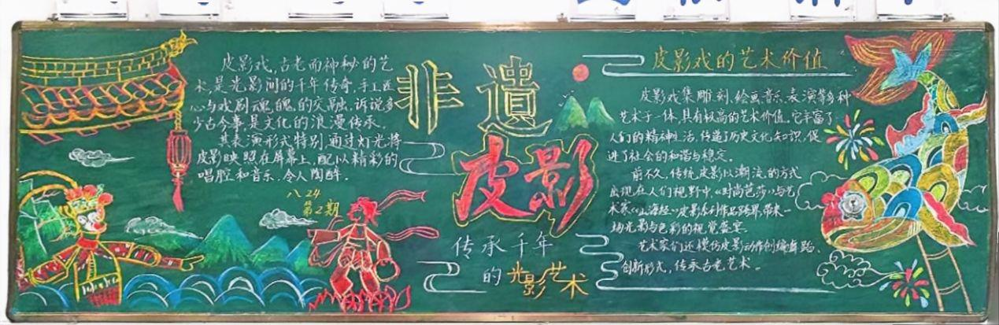 皮影戏,古老而神秘的艺
术,是光影间的千年传奇,手工匠
心与戏剧魂魄的交融,诉说多
少古今事,是文化的浪漫传承。
其表演形式特别,通过灯光将
皮影映照在屏幕上,配以精彩的
唱腔和音乐,令人陶醉。
八24
第2期
非遗
皮影
传承千年
的光影艺术
皮影戏的艺术价值
皮影戏集雕刻、绘画音乐、表演等多种
艺术于一体,具有极高的艺术价值。它丰富了
人们的精神生活,传递了历史文化知识,促
进了社会的和谐与稳定。
前不久,传统皮影以潮流的方式
出现在人们视野中。《时尚芭莎》与艺
术家《山海经》皮影系列作品跨界,带来一
场光影与色彩的视觉盛宴。
艺术家们还模仿皮影动作创编舞蹈、
创新形式,传承古老艺术。